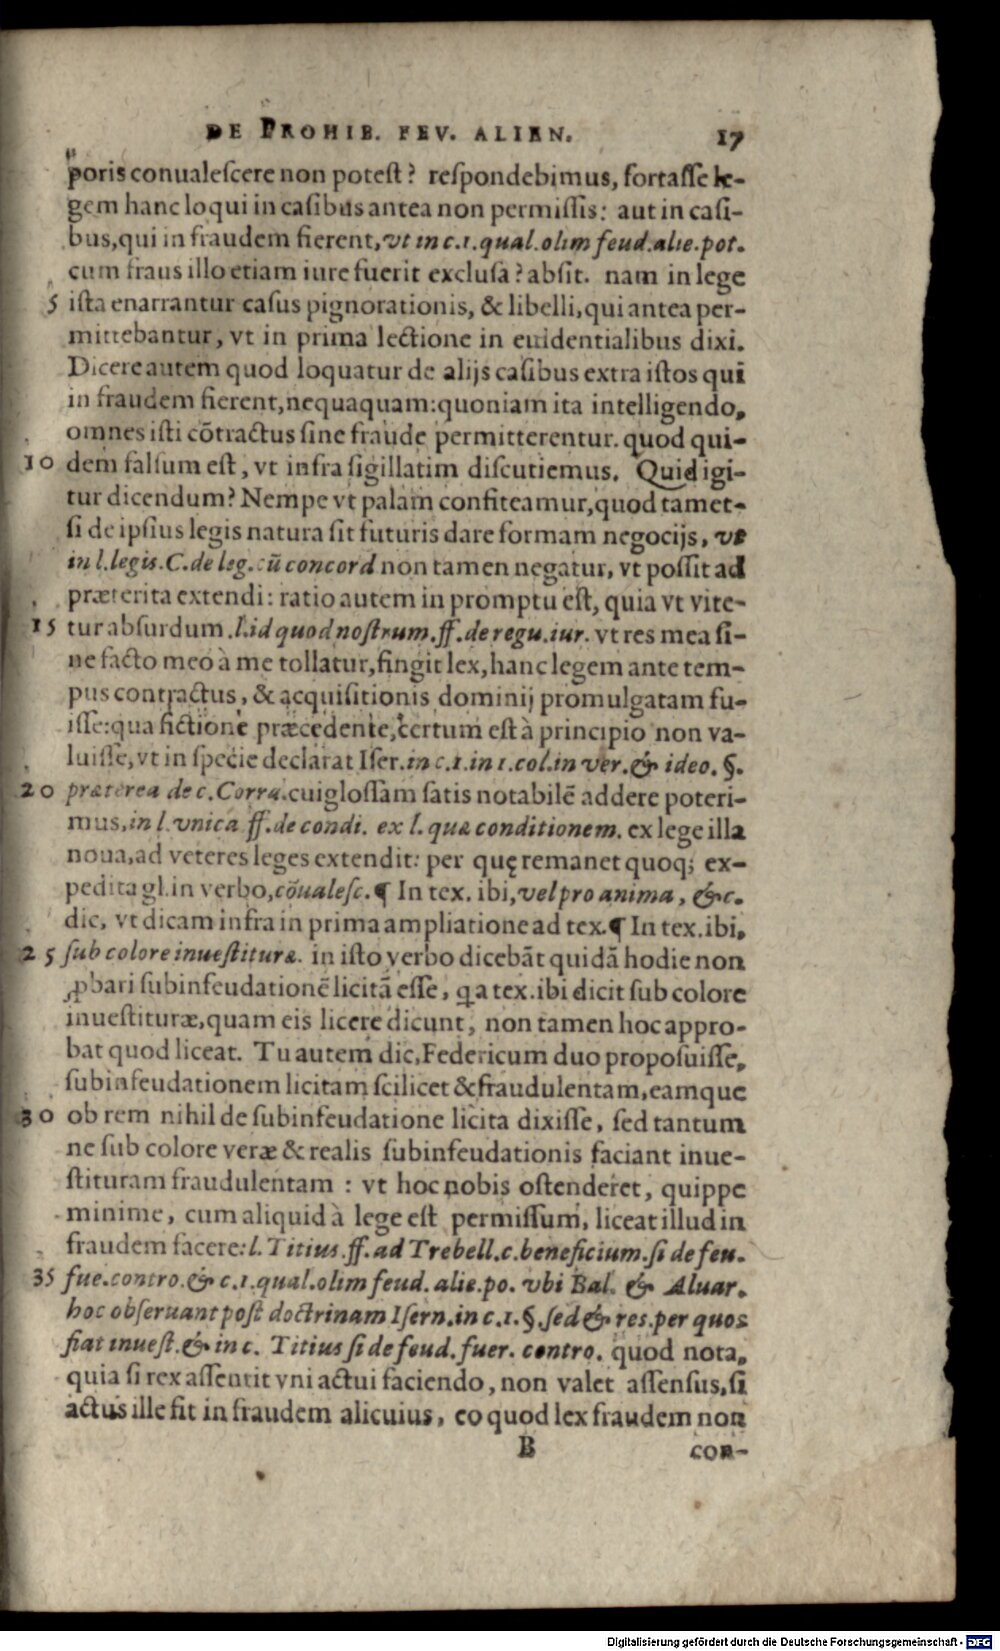 DE PROHIB. FEV. ALIEN. 17
poris conualeſcere non poteſt? reſpondebimus, fortaſſe le-
gem hanc loqui in caſibus antea non permiſſis: aut in caſi-
bus, qui in fraudem fierent, vt in c.1. qual. olim feud. alie. pot.
cum fraus illo etiam iure fuerit excluſa? abſit. nam in lege
5 iſta enarrantur caſus pignorationis, & libelli, qui antea per-
mittebantur, vt in prima lectione in euidentialibus dixi.
Dicere autem quod loquatur de alijs caſibus extra iſtos qui
in fraudem fierent, nequaquam: quoniam ita intelligendo,
omnes iſti cōtractus ſine fraude permitterentur. quod qui-
10 dem falſum eſt, vt infra ſigillatim diſcutiemus. Quid igi-
tur dicendum? Nempe vt palam confiteamur, quod tamet-
ſi de ipſius legis natura ſit futuris dare formam negocijs, vt
in l. legis. C. de leg. cū concord non tamen negatur, vt poſſit ad
præterita extendi: ratio autem in promptu eſt, quia vt vite-
15 tur abſurdum .l. id quod noſtrum. ff. de regu. iur. vt res mea ſi-
ne facto meo à me tollatur, fingit lex, hanc legem ante tem-
pus contractus, & acquiſitionis dominij promulgatam fu-
iſſe: qua fictione præcedente, certum eſt à principio non va-
luiſſe, vt in ſpecie declarat Iſer. in c.1. in 1. col. in ver. & ideo. §.
20 præterea de c. Corra. cui gloſſam ſatis notabilē addere poteri-
mus, in l. vnica ff. de condi. ex l. quæ conditionem. ex lege illa
noua, ad veteres leges extendit: per quę remanet quoq; ex-
pedita gl. in verbo, cōualeſc. ¶ In tex. ibi, vel pro anima, &c.
dic, vt dicam infra in prima ampliatione ad tex. ¶ In tex. ibi,
25 ſub colore inueſtituræ. in iſto verbo dicebāt quidā hodie non
ꝓbari ſubinfeudationē licitā eſſe, qa tex. ibi dicit ſub colore
inueſtituræ, quam eis licere dicunt, non tamen hoc appro-
bat quod liceat. Tu autem dic, Federicum duo propoſuiſſe,
ſubinfeudationem licitam ſcilicet & fraudulentam, eamque
30 ob rem nihil de ſubinfeudatione licita dixiſſe, ſed tantum
ne ſub colore veræ & realis ſubinfeudationis faciant inue-
ſtituram fraudulentam : vt hoc nobis oſtenderet, quippe
minime, cum aliquid à lege eſt permiſſum, liceat illud in
fraudem facere: l. Titius. ff. ad Trebell. c. beneficium. ſi de feu.
35 fue. contro. & c.1. qual. olim feud. alie. po. vbi Bal. & Aluar.
hoc obſeruant poſt doctrinam Iſern. in c.1. §. ſed & res. per quos
fiat inueſt. & in c. Titius ſi de feud. fuer. contro. quod nota,
quia ſi rex aſſentit vni actui faciendo, non valet aſſenſus, ſi
actus ille fit in fraudem alicuius, eo quod lex fraudem non
B con-
Digitalisierung gefördert durch die Deutsche Forschungsgemeinschaft - DFG